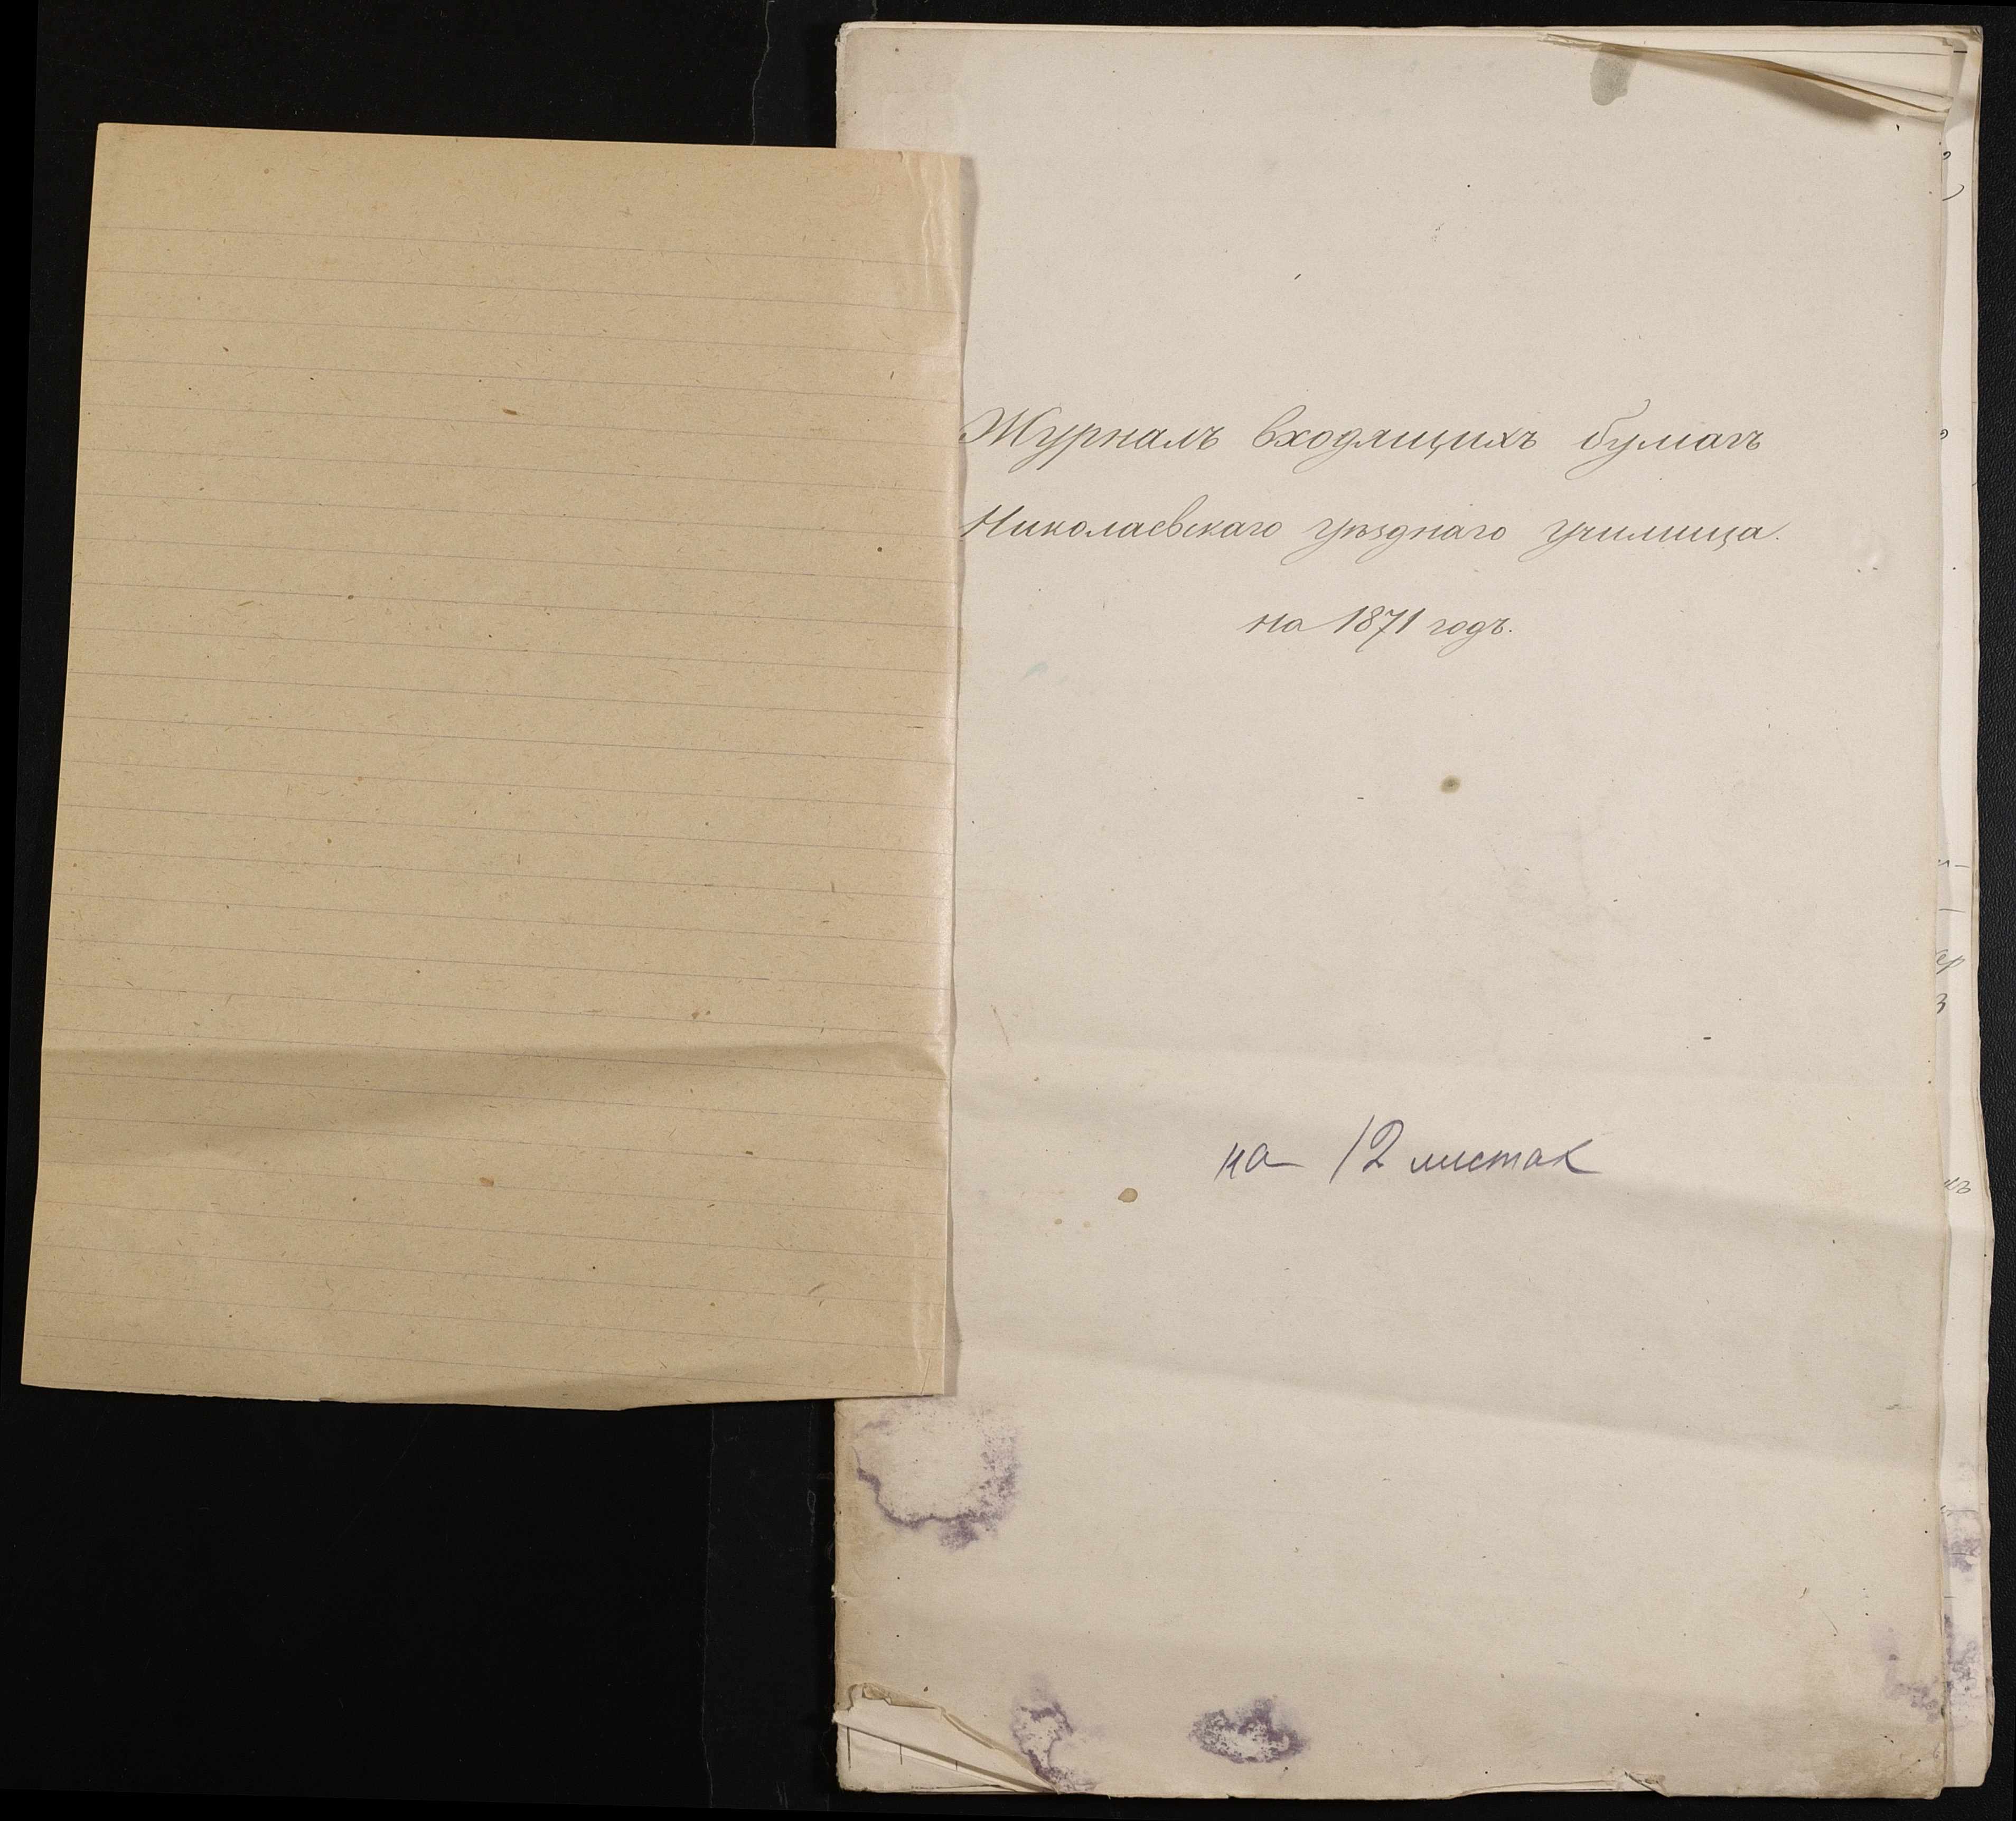 Журналъ входящихъ бумагъ
Николаевскаго уѣзднаго училища.
на 1871 годъ.
на 12 листах